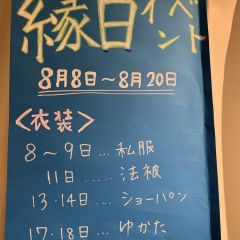 縁日イベント
8月8日～8月20日
＜衣装＞
8～9日…私服
11日……法被
13・14日…ショーパン
17・18日…ゆかた